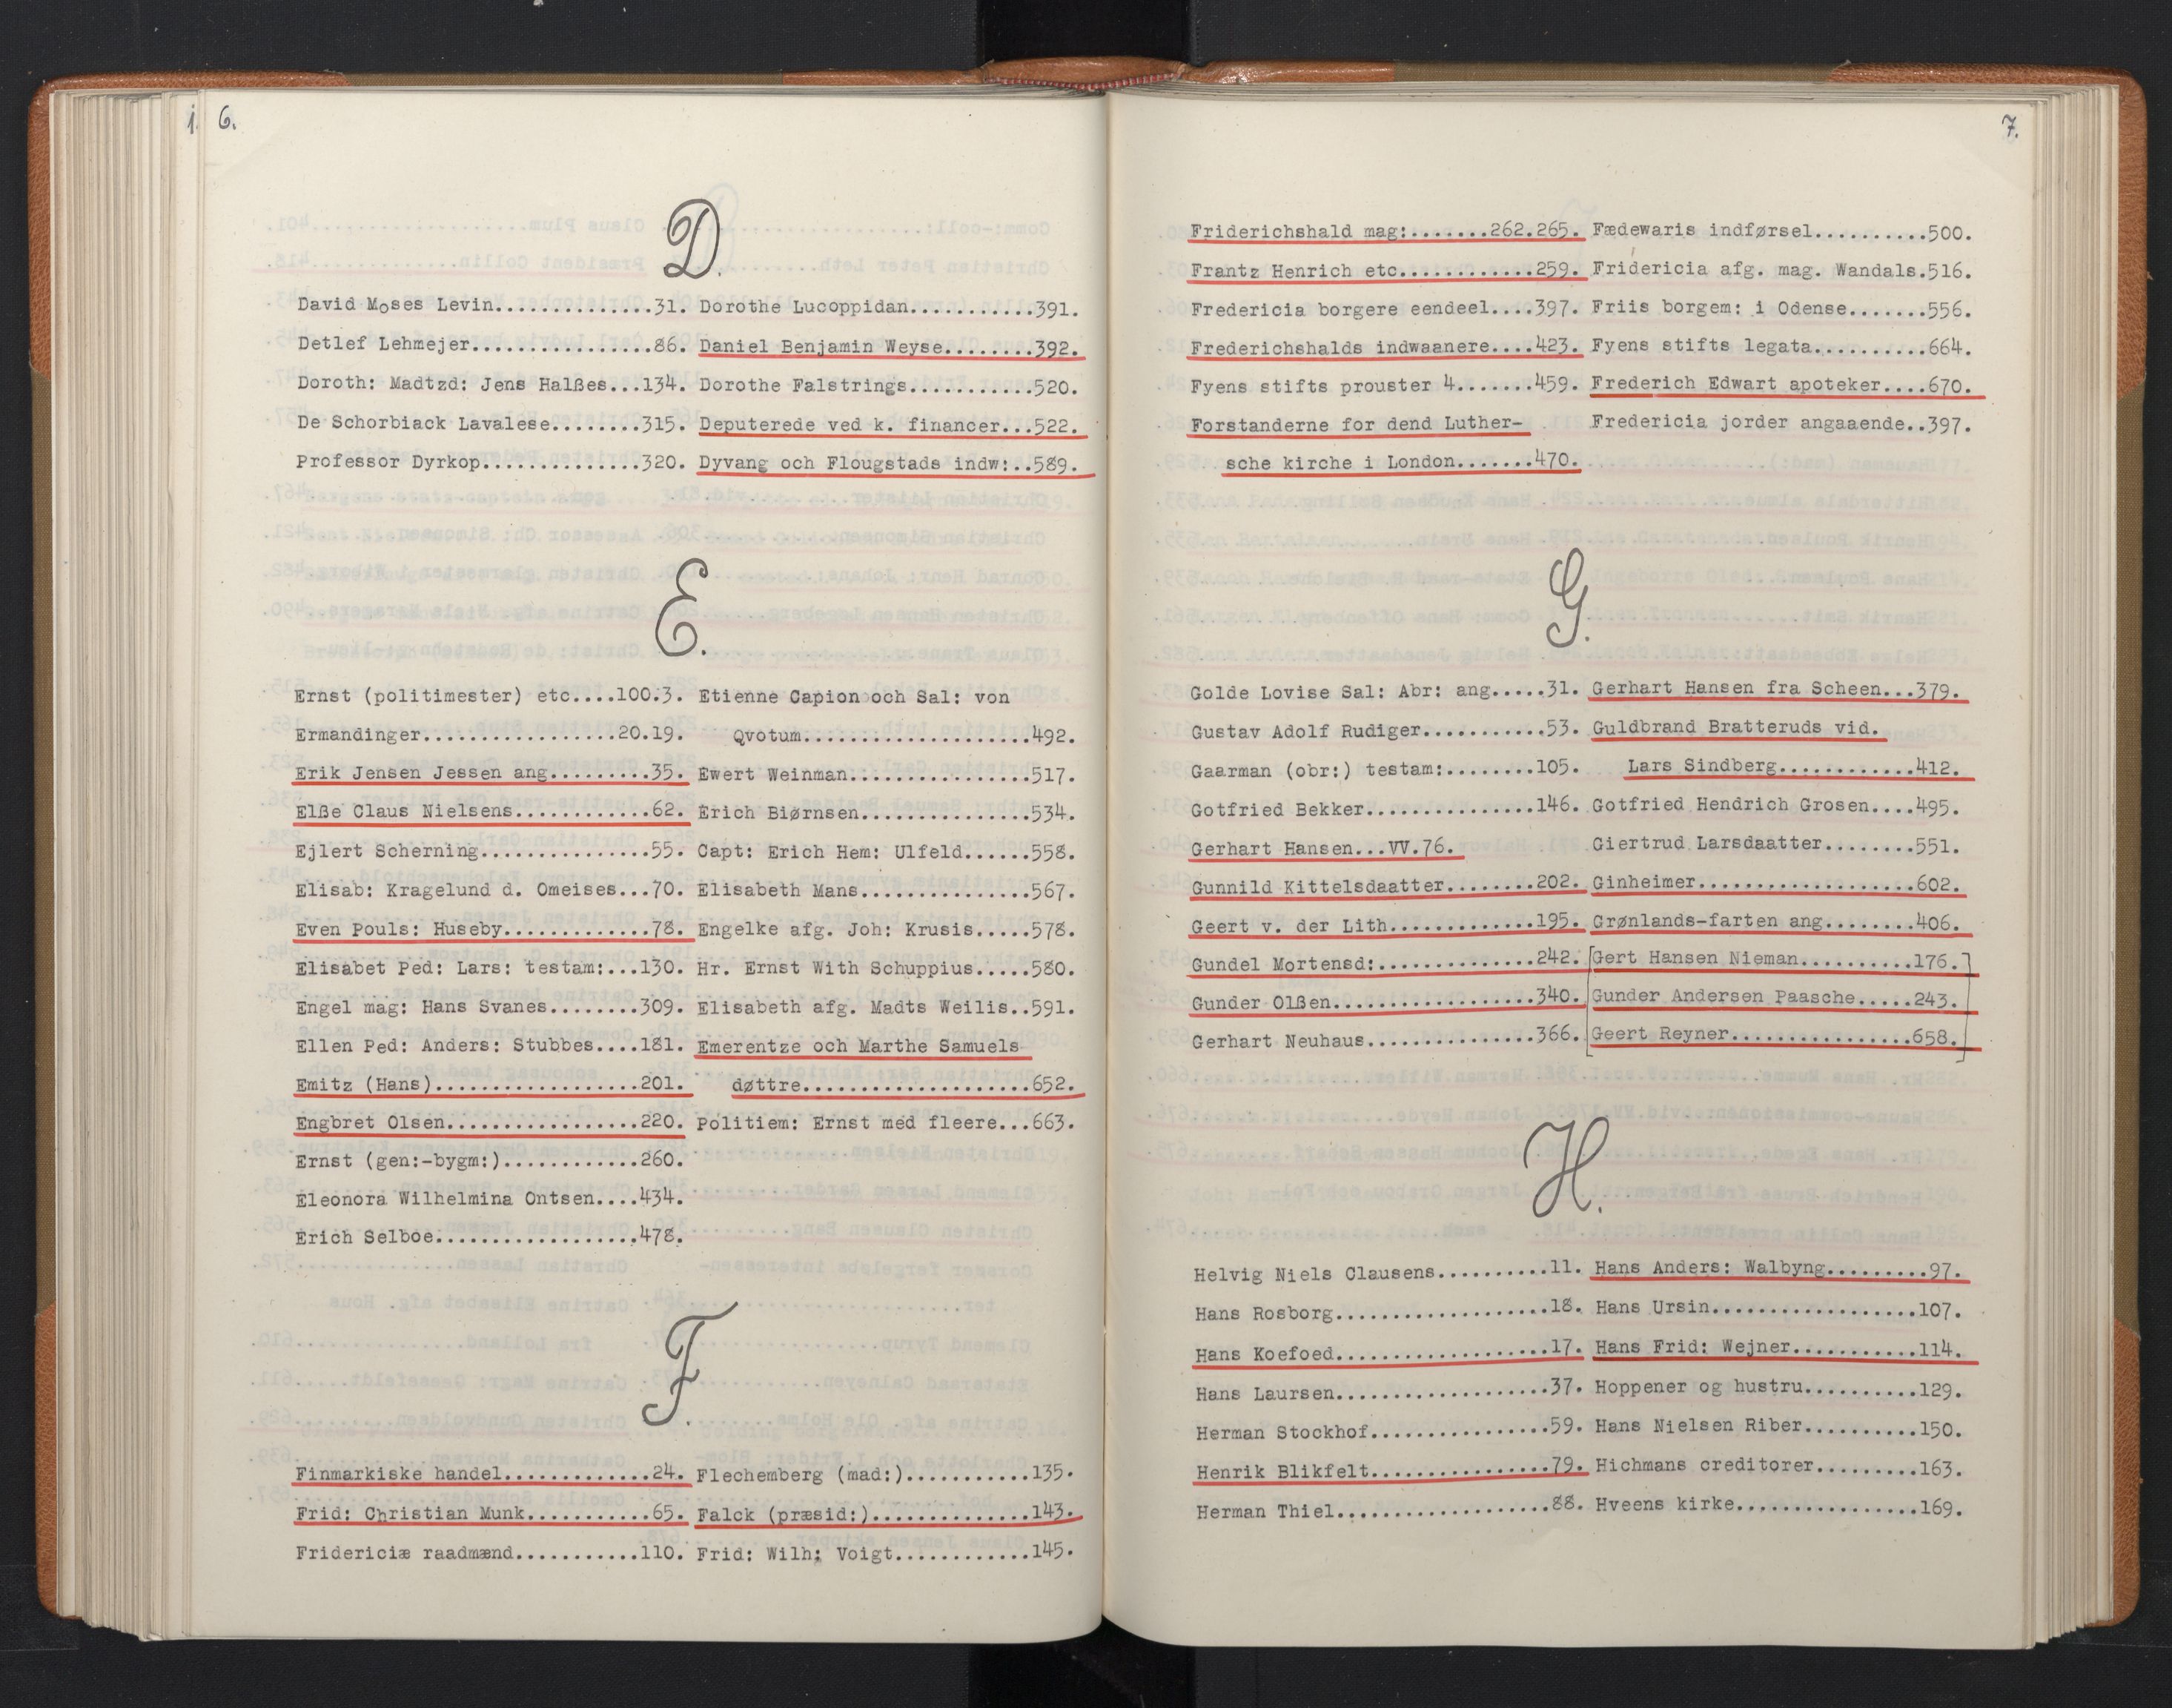 1. 6.
D.
David Moses Levin...............31.
Detlef Lehmejer.................86.
Doroth: Madtzd: Jens Halßes...134.
De Schorbiack Lavalese........315.
Professor Dyrkop..............320.
Dorothe Lucoppidan...........391.
Daniel Benjamin Weyse........392.
Dorothe Falstrings...........520.
Deputerede ved k. financer...522.
Dyvang och Flougstads indw:..589.
E.
Ernst (politimester) etc....100.3.
Ermandinger..................20.19.
Erik Jensen Jessen ang.........35.
Elße Claus Nielsens............62.
Ejlert Scherning...............55.
Elisab: Kragelund d. Omeises...70.
Even Pouls: Huseby.............78.
Elisabet Ped: Lars: testam:...130.
Engel mag: Hans Svanes........309.
Ellen Ped: Anders: Stubbes....181.
Emitz (Hans)..................201.
Engbret Olsen.................220.
Ernst (gen:-bygm:)............260.
Eleonora Wilhelmina Ontsen....434.
Erich Selboe..................478.
Etienne Capion och Sal: von
Qvotum.....................492.
Ewert Weinman................517.
Erich Biørnsen...............534.
Capt: Erich Hem: Ulfeld......558.
Elisabeth Mans...............567.
Engelke afg. Joh: Krusis.....578.
Hr. Ernst With Schuppius.....580.
Elisabeth afg. Madts Weilis..591.
Emerentze och Marthe Samuels
døttre.....................652.
Politiem: Ernst med fleere...663.
F.
Finmarkiske handel.............24.
Frid: Christian Munk...........65.
Fridericiæ raadmænd...........110.
Flechemberg (mad:)...........135.
Falck (præsid:)..............143.
Frid: Wilh: Voigt............145.
7.
Friderichshald mag:.......262.265.
Frantz Henrich etc............259.
Fredericia borgere eendeel....397.
Frederichshalds indwaanere....423.
Fyens stifts prouster 4.......459.
Forstanderne for dend Luther-
sche kirche i London.......470.
Fædewaris indførsel..........500.
Fridericia afg. mag. Wandals.516.
Friis borgem: i Odense.......556.
Fyens stifts legata..........664.
Frederich Edwart apoteker....670.
Fredericia jorder angaaende..397.
G.
Golde Lovise Sal: Abr: ang.....31.
Gustav Adolf Rudiger...........53.
Gaarman (obr:) testam:........105.
Gotfried Bekker...............146.
Gerhart Hansen...VV.76.
Gunnild Kittelsdaatter........202.
Geert v. der Lith.............195.
Gundel Mortensd:..............242.
Gunder Olßen..................340.
Gerhart Neuhaus...............366.
Gerhart Hansen fra Scheen...379.
Guldbrand Bratteruds vid.
Lars Sindberg............412.
Gotfried Hendrich Grosen....495.
Giertrud Larsdaatter........551.
Ginheimer...................602.
Grønlands-farten ang........406.
[Gert Hansen Nieman..........176.]
Gunder Andersen Paasche.....243.
Geert Reyner................658.
H.
Helvig Niels Clausens..........11.
Hans Rosborg...................18.
Hans Koefoed...................17.
Hans Laursen...................37.
Herman Stockhof................59.
Henrik Blikfelt................79.
Herman Thiel...................88.
Hans Anders: Walbyng.........97.
Hans Ursin..................107.
Hans Frid: Wejner...........114.
Hoppener og hustru..........129.
Hans Nielsen Riber..........150.
Hichmans creditorer.........163.
Hveens kirke................169.